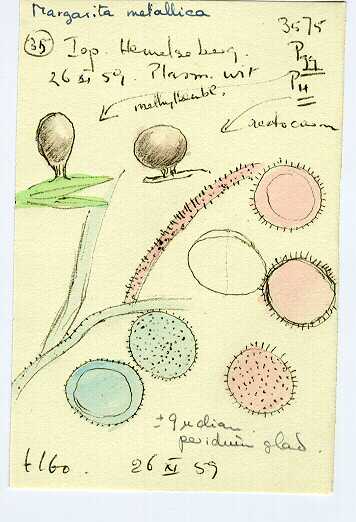 Margarita metallica
3575
(35) Top. Hemelse berg.
26 XI 59. Plasm. wit
P 39
P 11
methylbenbl.
aectocarm
± 9 µ diam.
peridium glad.
26 XI 59